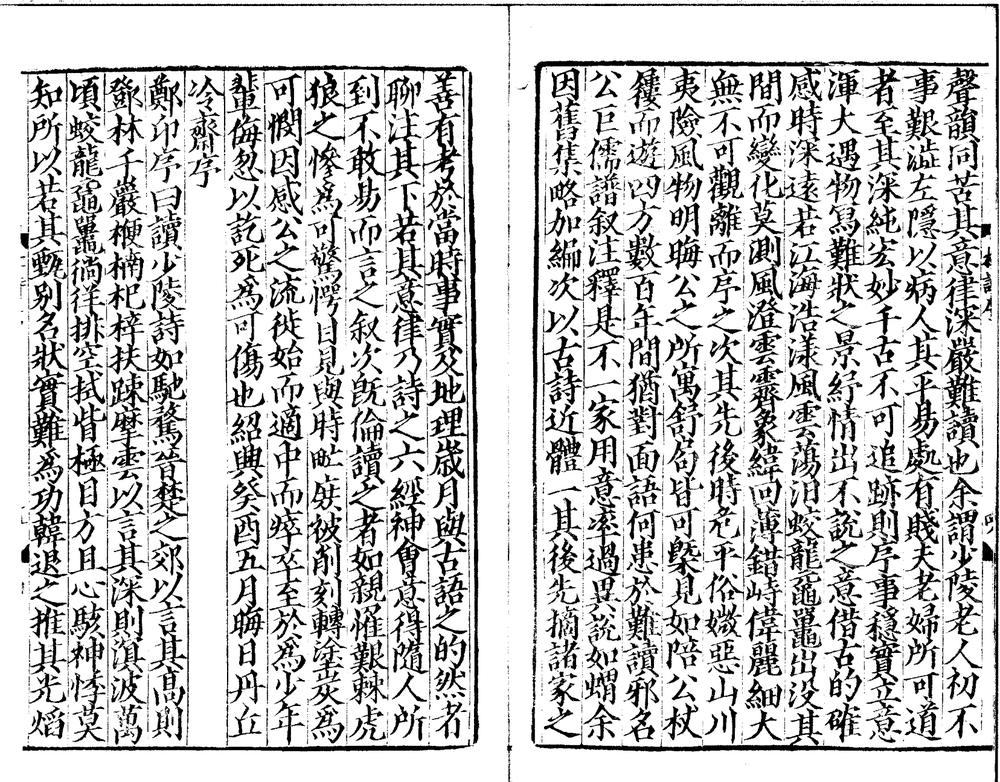 聲韻同苦其意律深嚴難讀也余謂少陵老人初不
事艱澁左隱以病人其平易處有賤夫老婦所可道
者至其深純宏妙千古不可追跡則序事穩實立意
渾大遇物寫難狀之景紓情出不說之意借古的確
感時深遠若江海浩漾風雲蕩汨蛟龍黿鼉出沒其
間而變化莫測風澄雲霽象緯回薄錯峙偉麗細大
無不可觀離而序之次其先後時危平俗媺惡山川
夷險風物明晦公之所寓舒局皆可槩見如陪公杖
屨而遊四方數百年間猶對面語何患於難讀邪名
公巨儒譜叙注釋是不一家用意率過異說如蝟余
因舊集略加編次以古詩近體一其後先摘諸家之
善有考於當時事實及地理歲月與古語之的然者
聊注其下若其意律乃詩之六經神會意得隨人所
到不敢易而言之叙次旣倫讀之者如親罹艱棘虎
狼之慘爲可驚愕目見與時甿庶被削刻轉塗炭爲
可憫因感公之流徙始而適中而瘁卒至於爲少年
輩侮忽以訖死爲可傷也紹興癸酉五月晦日丹丘
冷齋序
鄭卬序曰讀少陵詩如馳騖晉楚之郊以言其高則
鄧林千巖楩楠杞梓扶疎摩雲以言其深則滇波萬
頃蛟龍黿鼉徜徉排空拭眥極目方且心駭神悸莫
知所以若其甄别名狀實難爲功韓退之推其光熖